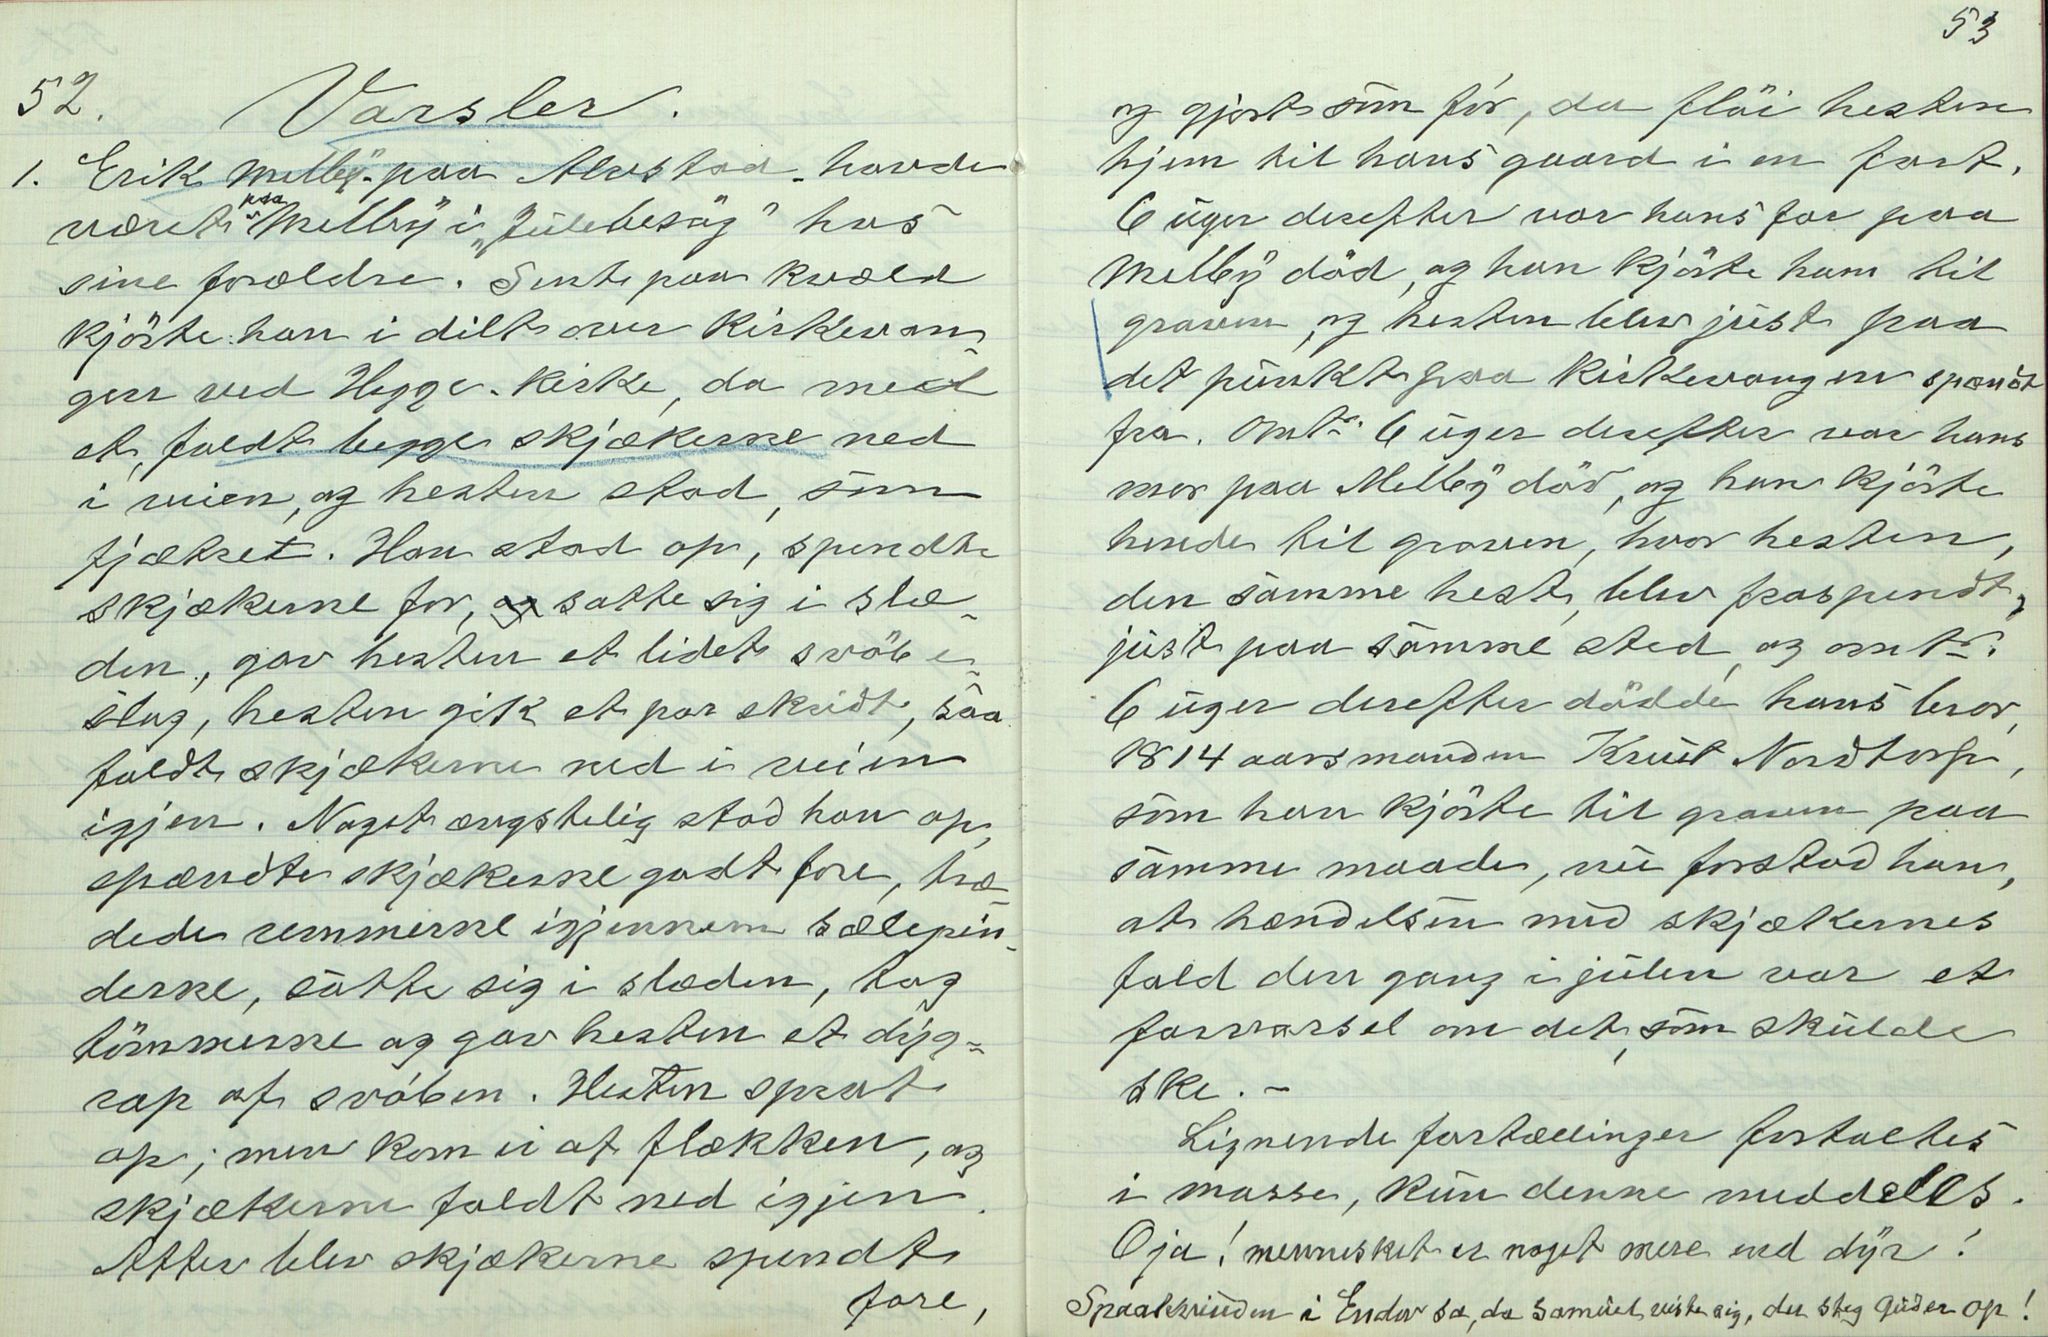 52.
Varsler.
1. Erik Melby - paa Alvstad - havde
været paa Melby i "Julebesøg" hos
sine forældre. Sent paa kvæld
kjörte han i dilt over Kirkevan-
gen ved Hegge-Kirke, da med
et, faldt begge skjækerne ned
i veien, og hesten stod, som
fjætret. Han stod op, spendte
skjækerne for, satte sig i slæ-
den, gav hesten et lidet svöbe-
slag, hesten gik et par skridt, saa
faldt skjækerne ned i veien
igjen. Noget ængstelig stod han op,
spændte skjækerne godt fore, træ-
dede remmerne igjennem sælepin-
derne, satte sig i slæden, tog
tömmerne og gav hesten et dyg-
rap af svöben. Hesten sprat
op; men kom ei af flækken, og
skjækerne faldt ned igjen.
Atter blev skjækerne spendt
fore,
53
og gjort som för, da flöi hesten
hjem til hans gaard i en fart.
6 uger derefter var hans far paa
Melby död, og han kjörte ham til
graven, og hesten blev just paa
det punkt paa Kirkevangen spændt
fra. Omtr. 6 uger derefter var hans
mor paa Melby död, og han kjörte
hende til graven, hvor hesten,
den samme hest, blev fraspendt,
just paa samme sted, og omtr.
6 uger derefter dödde hans bror,
1814 aarsmanden Knut Nordtorp,
som han kjörte til graven paa
samme maade, nu forstod han,
at hændelsen med skjækernes
fald den gang i julen var et
forvarsel om det, som skulde
ske. -
Lignende fortællinger fortaltes
i masse, kun denne meddeles.
Oja! mennesket er noget mere end dyr!
Spaakvinden i Endor sa, da Samuel viste sig, der steg Guder op!